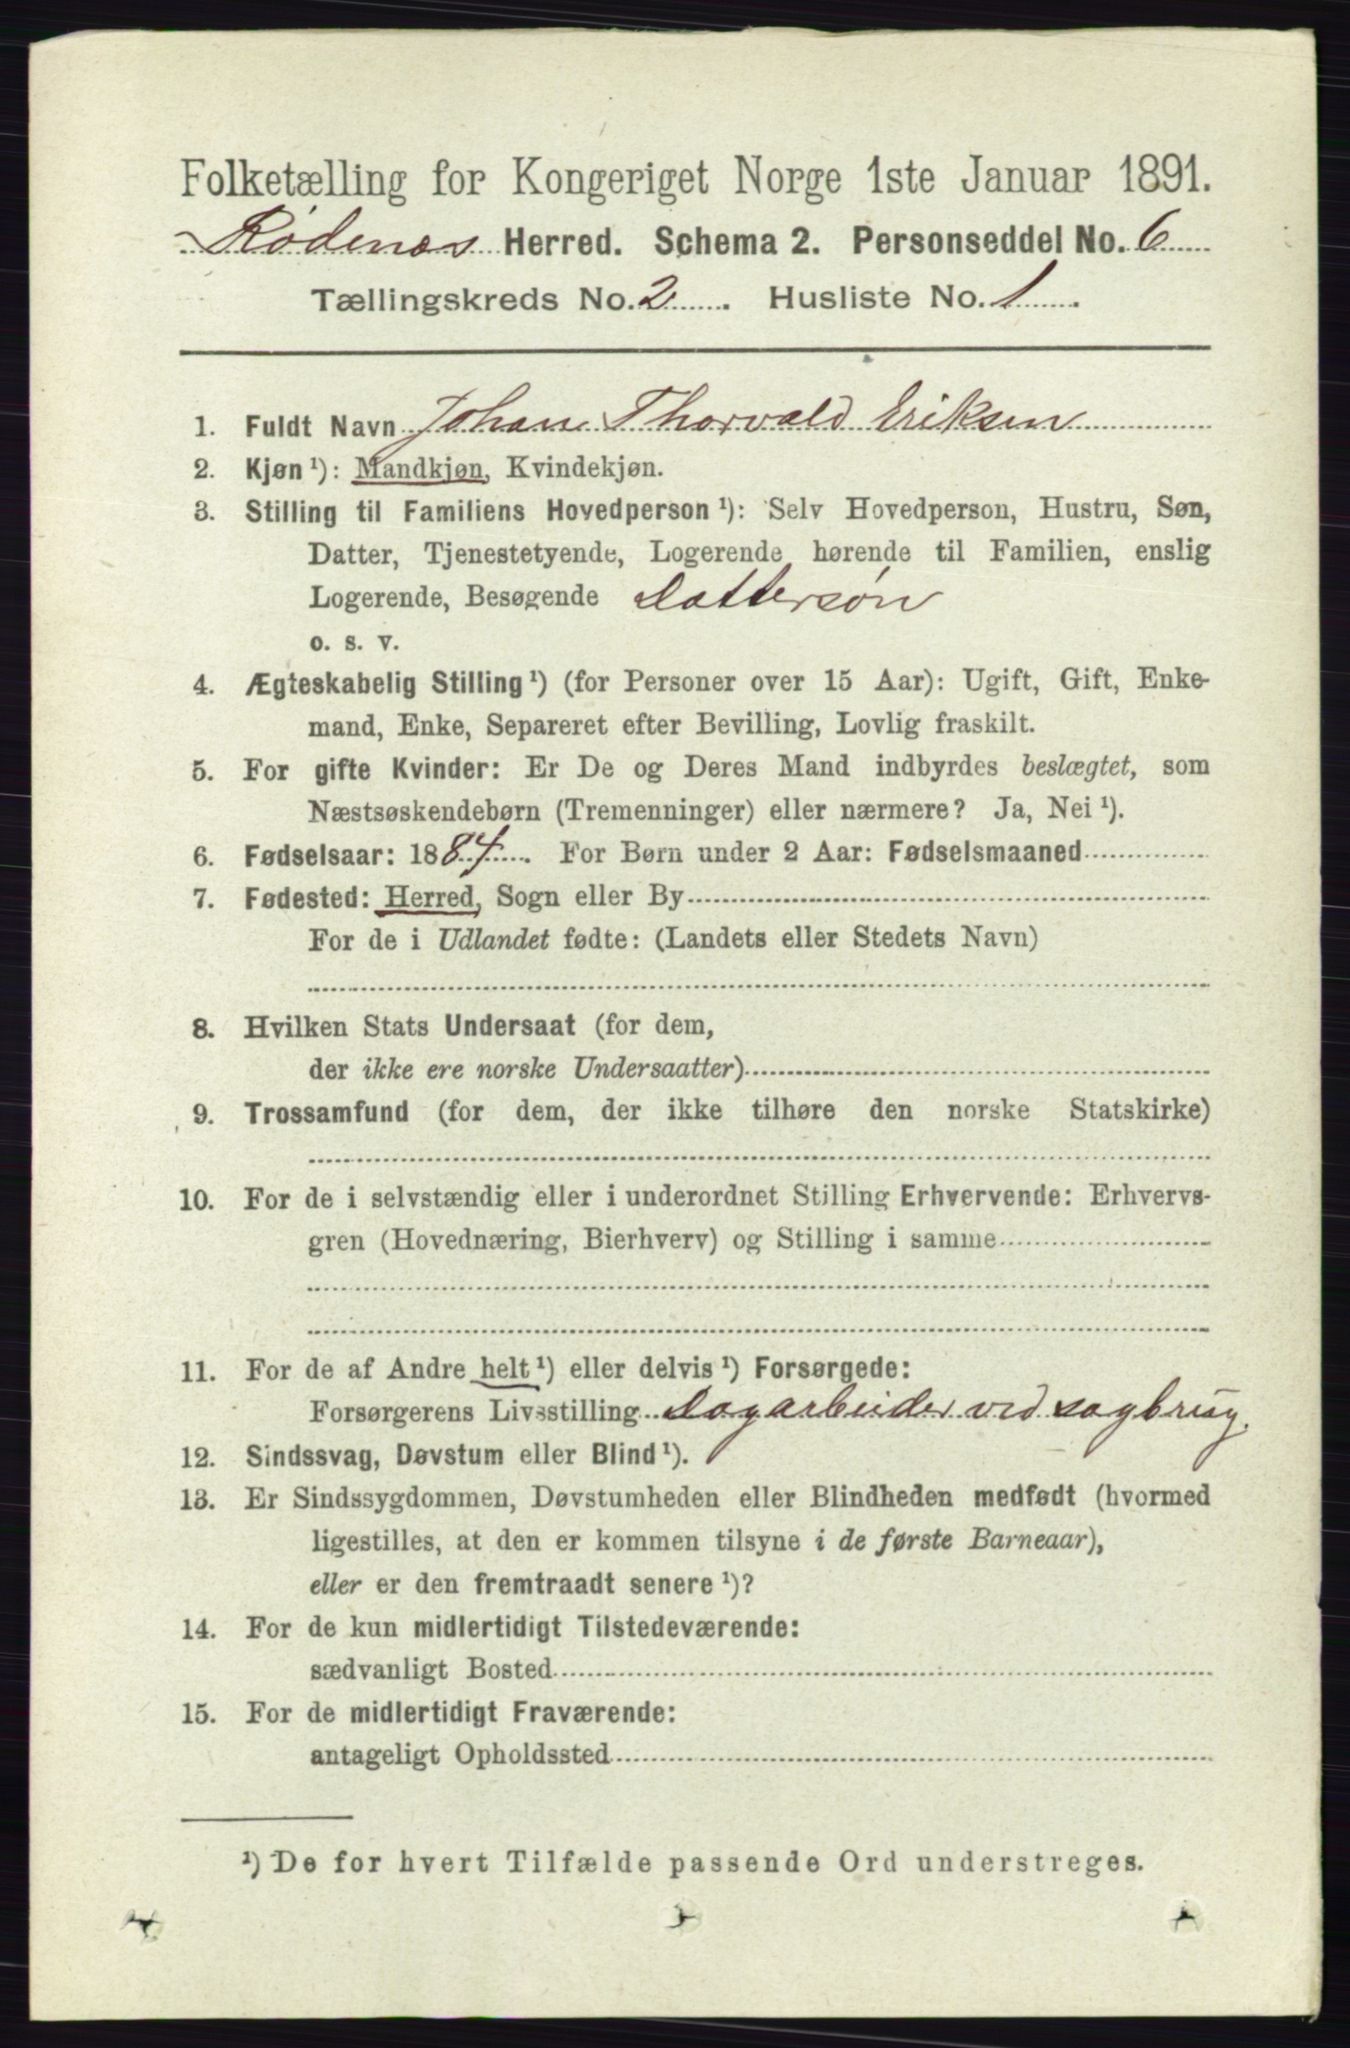 Folketælling for Kongeriget Norge 1ste Januar 1891.
Rødenæs Herred. Schema 2. Personseddel No. 6
Tællingskreds No. 2. Husliste No. 1.
1. Fuldt Navn Johan Thorvald Eriksen
2. Kjøn ¹): Mandkjøn, Kvindekjøn.
3. Stilling til Familiens Hovedperson ¹): Selv Hovedperson, Hustru, Søn,
Datter, Tjenestetyende, Logerende hørende til Familien, enslig
Logerende, Besøgende Dattersøn
o. s. v.
4. Ægteskabelig Stilling ¹) (for Personer over 15 Aar): Ugift, Gift, Enke-
mand, Enke, Separeret efter Bevilling, Lovlig fraskilt.
5. For gifte Kvinder: Er De og Deres Mand indbyrdes beslægtet, som
Næstsøskendebørn (Tremenninger) eller nærmere? Ja, Nei ¹).
6. Fødselsaar: 1884. For Børn under 2 Aar: Fødselsmaaned
7. Fødested: Herred, Sogn eller By
For de i Udlandet fødte: (Landets eller Stedets Navn)
8. Hvilken Stats Undersaat (for dem,
der ikke ere norske Undersaatter)
9. Trossamfund (for dem, der ikke tilhøre den norske Statskirke)
10. For de i selvstændig eller i underordnet Stilling Erhvervende: Erhvervs-
gren (Hovednæring, Bierhverv) og Stilling i samme
11. For de af Andre helt ¹) eller delvis ¹) Forsørgede:
Forsørgerens Livsstilling Dagarbeider ved sagbrug.
12. Sindssvag, Døvstum eller Blind ¹).
13. Er Sindssygdommen, Døvstumheden eller Blindheden medfødt (hvormed
ligestilles, at den er kommen tilsyne i de første Barneaar),
eller er den fremtraadt senere ¹)?
14. For de kun midlertidigt Tilstedeværende:
sædvanligt Bosted
15. For de midlertidigt Fraværende:
antageligt Opholdssted
¹) De for hvert Tilfælde passende Ord understreges.